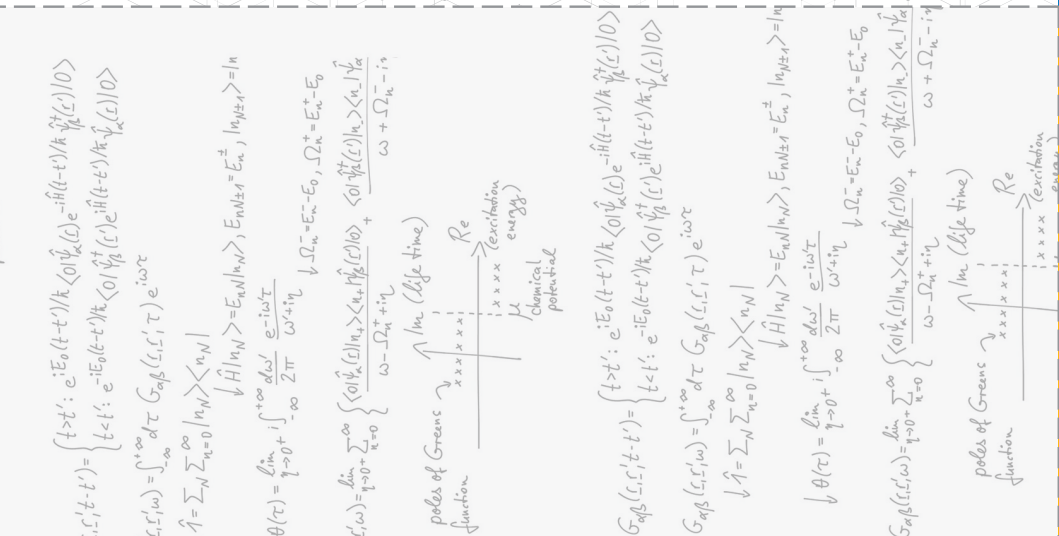 ,r,r',t-t')= { t>t': e^{iE₀(t-t')/ħ} <0|ψ̂_α(r)e^{-iĤ(t-t')/ħ} ψ̂†_β(r')|0>
t<t': e^{-iE₀(t-t')/ħ} <0|ψ̂†_β(r')e^{iĤ(t-t')/ħ} ψ̂_α(r)|0>
(r,r',ω)=∫_{-∞}^{+∞} dτ G_αβ(r,r',τ) e^{iωτ}
↓ 1̂=Σ_N Σ_{n=0}^∞ |n_N><n_N|
↓ Ĥ|n_N>=E_{nN}|n_N>, E_{nN±1}=E_n^±, |n_{N±1}>=|n
θ(τ)=lim_{η→0+} i∫_{-∞}^{+∞} dω'/2π e^{-iω'τ}/(ω'+iη)
↓ Ω_n^-=E_n^- -E₀, Ω_n^+=E_n^+ -E₀
r',ω)=lim_{η→0+} Σ_{n=0}^∞ { <0|ψ̂_α(r)|n₊><n₊|ψ̂†_β(r')|0>/(ω-Ω_n^+ +iη) + <0|ψ̂†_β(r')|n₋><n₋|ψ̂_α/(ω+Ω_n^- -iη
poles of Greens
function
Im (life time)
Re
(excitation
energy)
x x x x x
x x x x
μ
chemical
potential
G_αβ(r,r',t-t')= { t>t': e^{iE₀(t-t')/ħ} <0|ψ̂_α(r)e^{-iĤ(t-t')/ħ} ψ̂†_β(r')|0>
t<t': e^{-iE₀(t-t')/ħ} <0|ψ̂†_β(r')e^{iĤ(t-t')/ħ} ψ̂_α(r)|0>
G_αβ(r,r',ω)=∫_{-∞}^{+∞} dτ G_αβ(r,r',τ) e^{iωτ}
↓ 1̂=Σ_N Σ_{n=0}^∞ |n_N><n_N|
↓ Ĥ|n_N>=E_{nN}|n_N>, E_{nN±1}=E_n^±, |n_{N±1}>=|n
↓ θ(τ)=lim_{η→0+} i∫_{-∞}^{+∞} dω'/2π e^{-iω'τ}/(ω'+iη)
↓ Ω_n^-=E_n^- -E₀, Ω_n^+=E_n^+ -E₀
G_αβ(r,r',ω)=lim_{η→0+} Σ_{n=0}^∞ { <0|ψ̂_α(r)|n₊><n₊|ψ̂†_β(r')|0>/(ω-Ω_n^+ +iη) + <0|ψ̂†_β(r')|n₋><n₋|ψ̂_α/(ω+Ω_n^- -iη
poles of Greens
function
Im (life time)
Re
(excitation
x x x x x
x x x x